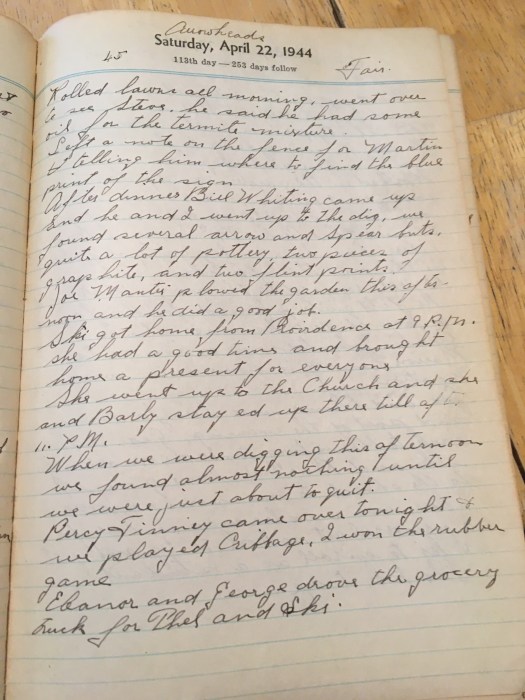 Arrowheads
Saturday, April 22, 1944
45
113th day—253 days follow
Fair.
Rolled lawns all morning, went over
to see Steve. he said he had some
oil for the termite mixture.
Left a note on the fence for Martin
telling him where to find the blue
print of the sign
After dinner Bill Whiting came up
and he and I went up to the dig, we
found several arrow and spear buts,
quite a lot of pottery, two pieces of
graphite, and two flint points.
Joe Mantis plowed the garden this after-
noon and he did a good job.
Ski got home from Providence at 9 P.M.
she had a good time and brought
home a present for everyone
She went up to the Church and she
and Barby stayed up there till after
11. P.M.
When we were digging this afternoon
we found almost nothing until
we were just about to quit.
Percy Tinney came over tonight &
we played Cribbage, I won the rubber
game
Eleanor and George drove the grocery
truck for Phel and Ski.